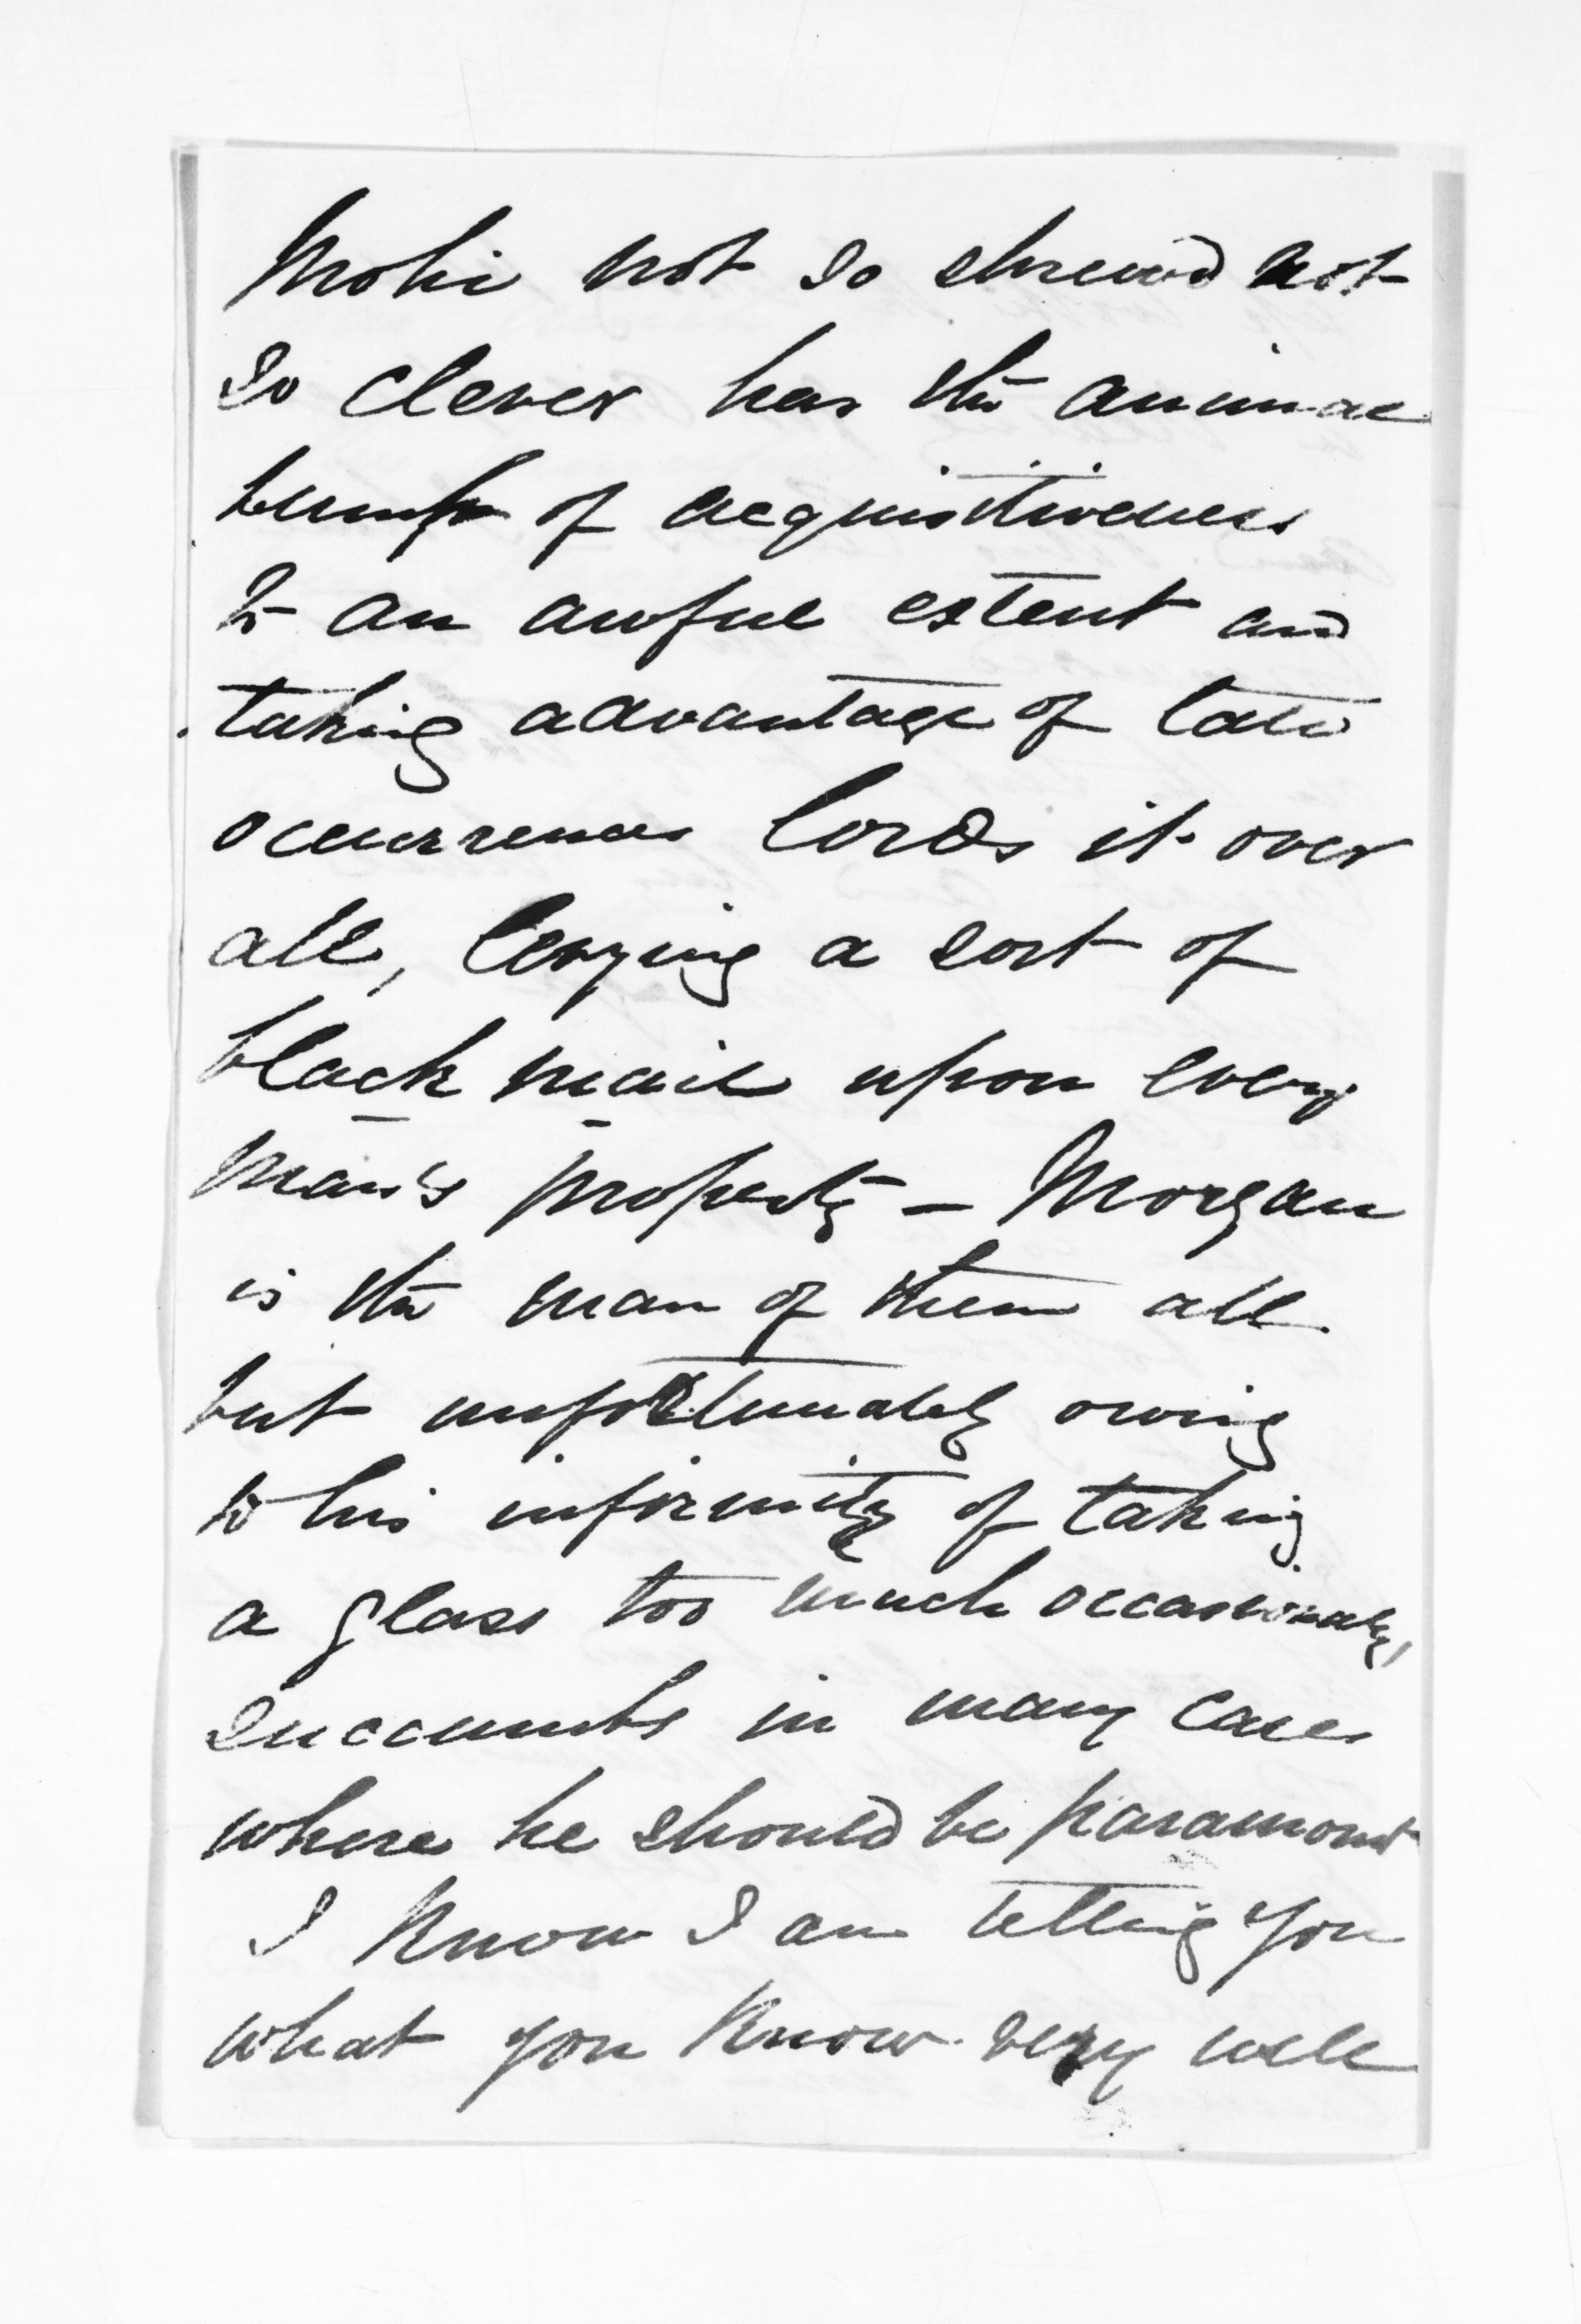 Mohi not so shrewd not
so clever has the animal
bump of acquisitiveness
to an awful extent and
taking advantage of late
occurrences lords it over
all, levying a sort of
black mail upon every
man's property - Morgan
is the man of them all
but unfortunately owing
to his infirmity of taking
a glass too much occasionally,
succumbs in many cases
where he should be paramount
I know I am telling you
what you know very well